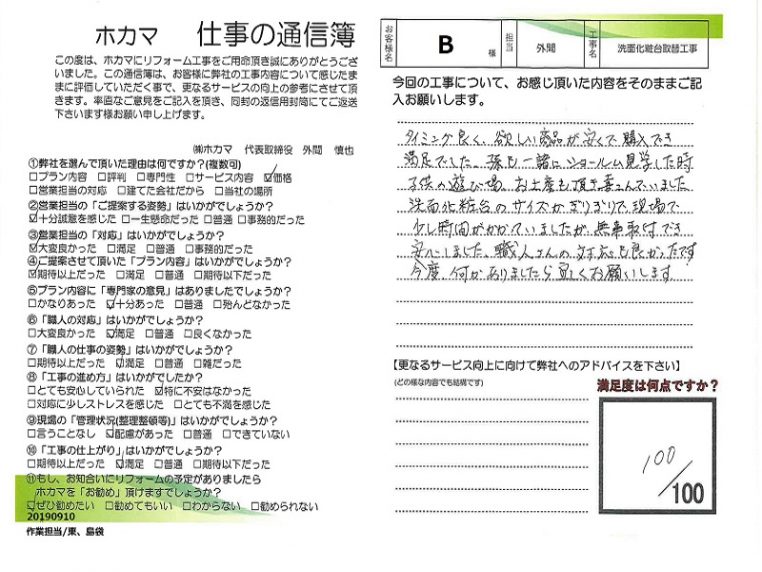 ホカマ 仕事の通信簿
この度は、ホカマにリフォーム工事をご用命頂き誠にありがとうござ
いました。この通信簿は、お客様に弊社の工事内容について感じたま
まに評価していただく事で、更なるサービスの向上の参考にさせて頂
きます。率直なご意見をご記入を頂き、同封の返信用封筒にてご返送
下さいます様お願い申し上げます。
㈱ホカマ 代表取締役 外間 慎也
①弊社を選んで頂いた理由は何ですか?(複数可)
□プラン内容 □評判 □専門性 □サービス内容 ☑価格
□営業担当の対応 □建てた会社だから □当社の場所
②営業担当の「ご提案する姿勢」はいかがでしょうか?
☑十分誠意を感じた □一生懸命だった □普通 □事務的だった
③営業担当の「対応」はいかがでしょうか?
☑大変良かった □満足 □普通 □事務的だった
④ご提案させて頂いた「プラン内容」はいかがでしょうか?
☑期待以上だった □満足 □普通 □期待以下だった
⑤プラン内容に「専門家の意見」はありましたでしょうか?
□かなりあった ☑十分あった □普通 □殆んどなかった
⑥「職人の対応」はいかがでしょうか?
□大変良かった ☑満足 □普通 □良くなかった
⑦「職人の仕事の姿勢」はいかがでしょうか?
□期待以上だった ☑満足 □普通 □雑だった
⑧「工事の進め方」はいかがでしたか?
□とても安心していられた ☑特に不安はなかった
□対応に少しストレスを感じた □とても不満を感じた
⑨現場の「管理状況(整理整頓等)」はいかがでしょうか?
□言うことなし ☑配慮があった □普通 □できていない
⑩「工事の仕上がり」はいかがでしょうか?
□期待以上だった ☑満足 □普通 □期待以下だった
⑪もし、お知合いにリフォームの予定がありましたら
ホカマを「お勧め」頂けますでしょうか?
☑ぜひ勧めたい □勧めてもいい □わからない □勧められない
20190910
作業担当/東、島袋
お客様名 B 様 担当 外間 工事名 洗面化粧台取替工事
今回の工事について、お感じ頂いた内容をそのままご記
入お願いします。
タイミング良く、欲しい商品が安くで購入でき
満足でした。孫も一緒にショールーム見学した時
子供の遊び場、お土産も頂き喜んでいました
洗面化粧台のサイズがぎりぎりで現場で
少し時間がかかていましたが無事取付でき
安心しました。職人さんの対応も良かったです
今度、何かありましたら宜しくお願いします
【更なるサービス向上に向けて弊社へのアドバイスを下さい】
(どの様な内容でも結構です)
満足度は何点ですか?
100/100